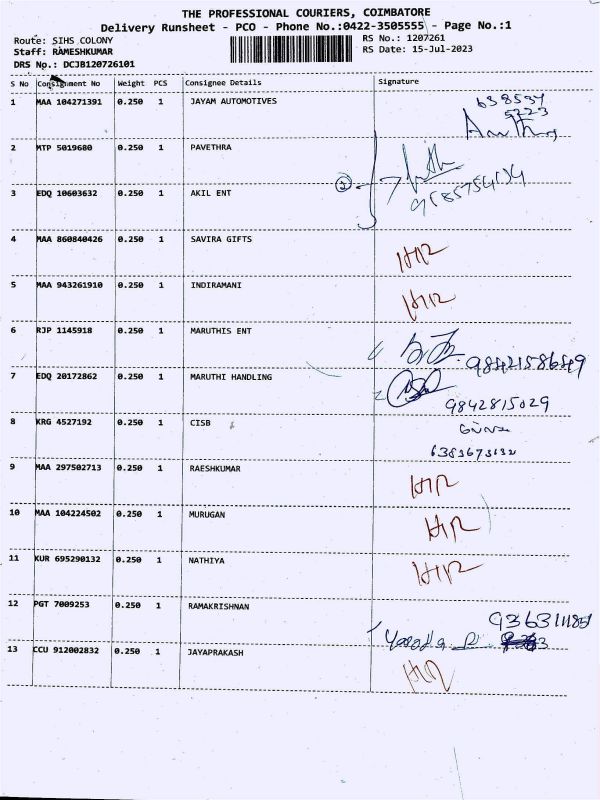 THE PROFESSIONAL COURIERS, COIMBATORE
Delivery Runsheet - PCO - Phone No.:0422-3505555 - Page No.:1
Route: SIHS COLONY RS No.: 1207261
Staff: RAMESHKUMAR RS Date: 15-Jul-2023
DRS No.: DCJB120726101
S No Consignment No Weight PCS Consignee Details Signature
1 MAA 104271391 0.250 1 JAYAM AUTOMOTIVES 638534
5223
2 MTP 5019680 0.250 1 PAVETHRA
3 EDQ 10603632 0.250 1 AKIL ENT
4 MAA 860840426 0.250 1 SAVIRA GIFTS
5 MAA 943261910 0.250 1 INDIRAMANI
6 RJP 1145918 0.250 1 MARUTHIS ENT
9842158649
7 EDQ 20172862 0.250 1 MARUTHI HANDLING
9842815029
8 KRG 4527192 0.250 1 CISB
9 MAA 297502713 0.250 1 RAESHKUMAR
10 MAA 104224502 0.250 1 MURUGAN
11 KUR 695290132 0.250 1 NATHIYA
12 PGT 7009253 0.250 1 RAMAKRISHNAN
13 CCU 912002832 0.250 1 JAYAPRAKASH